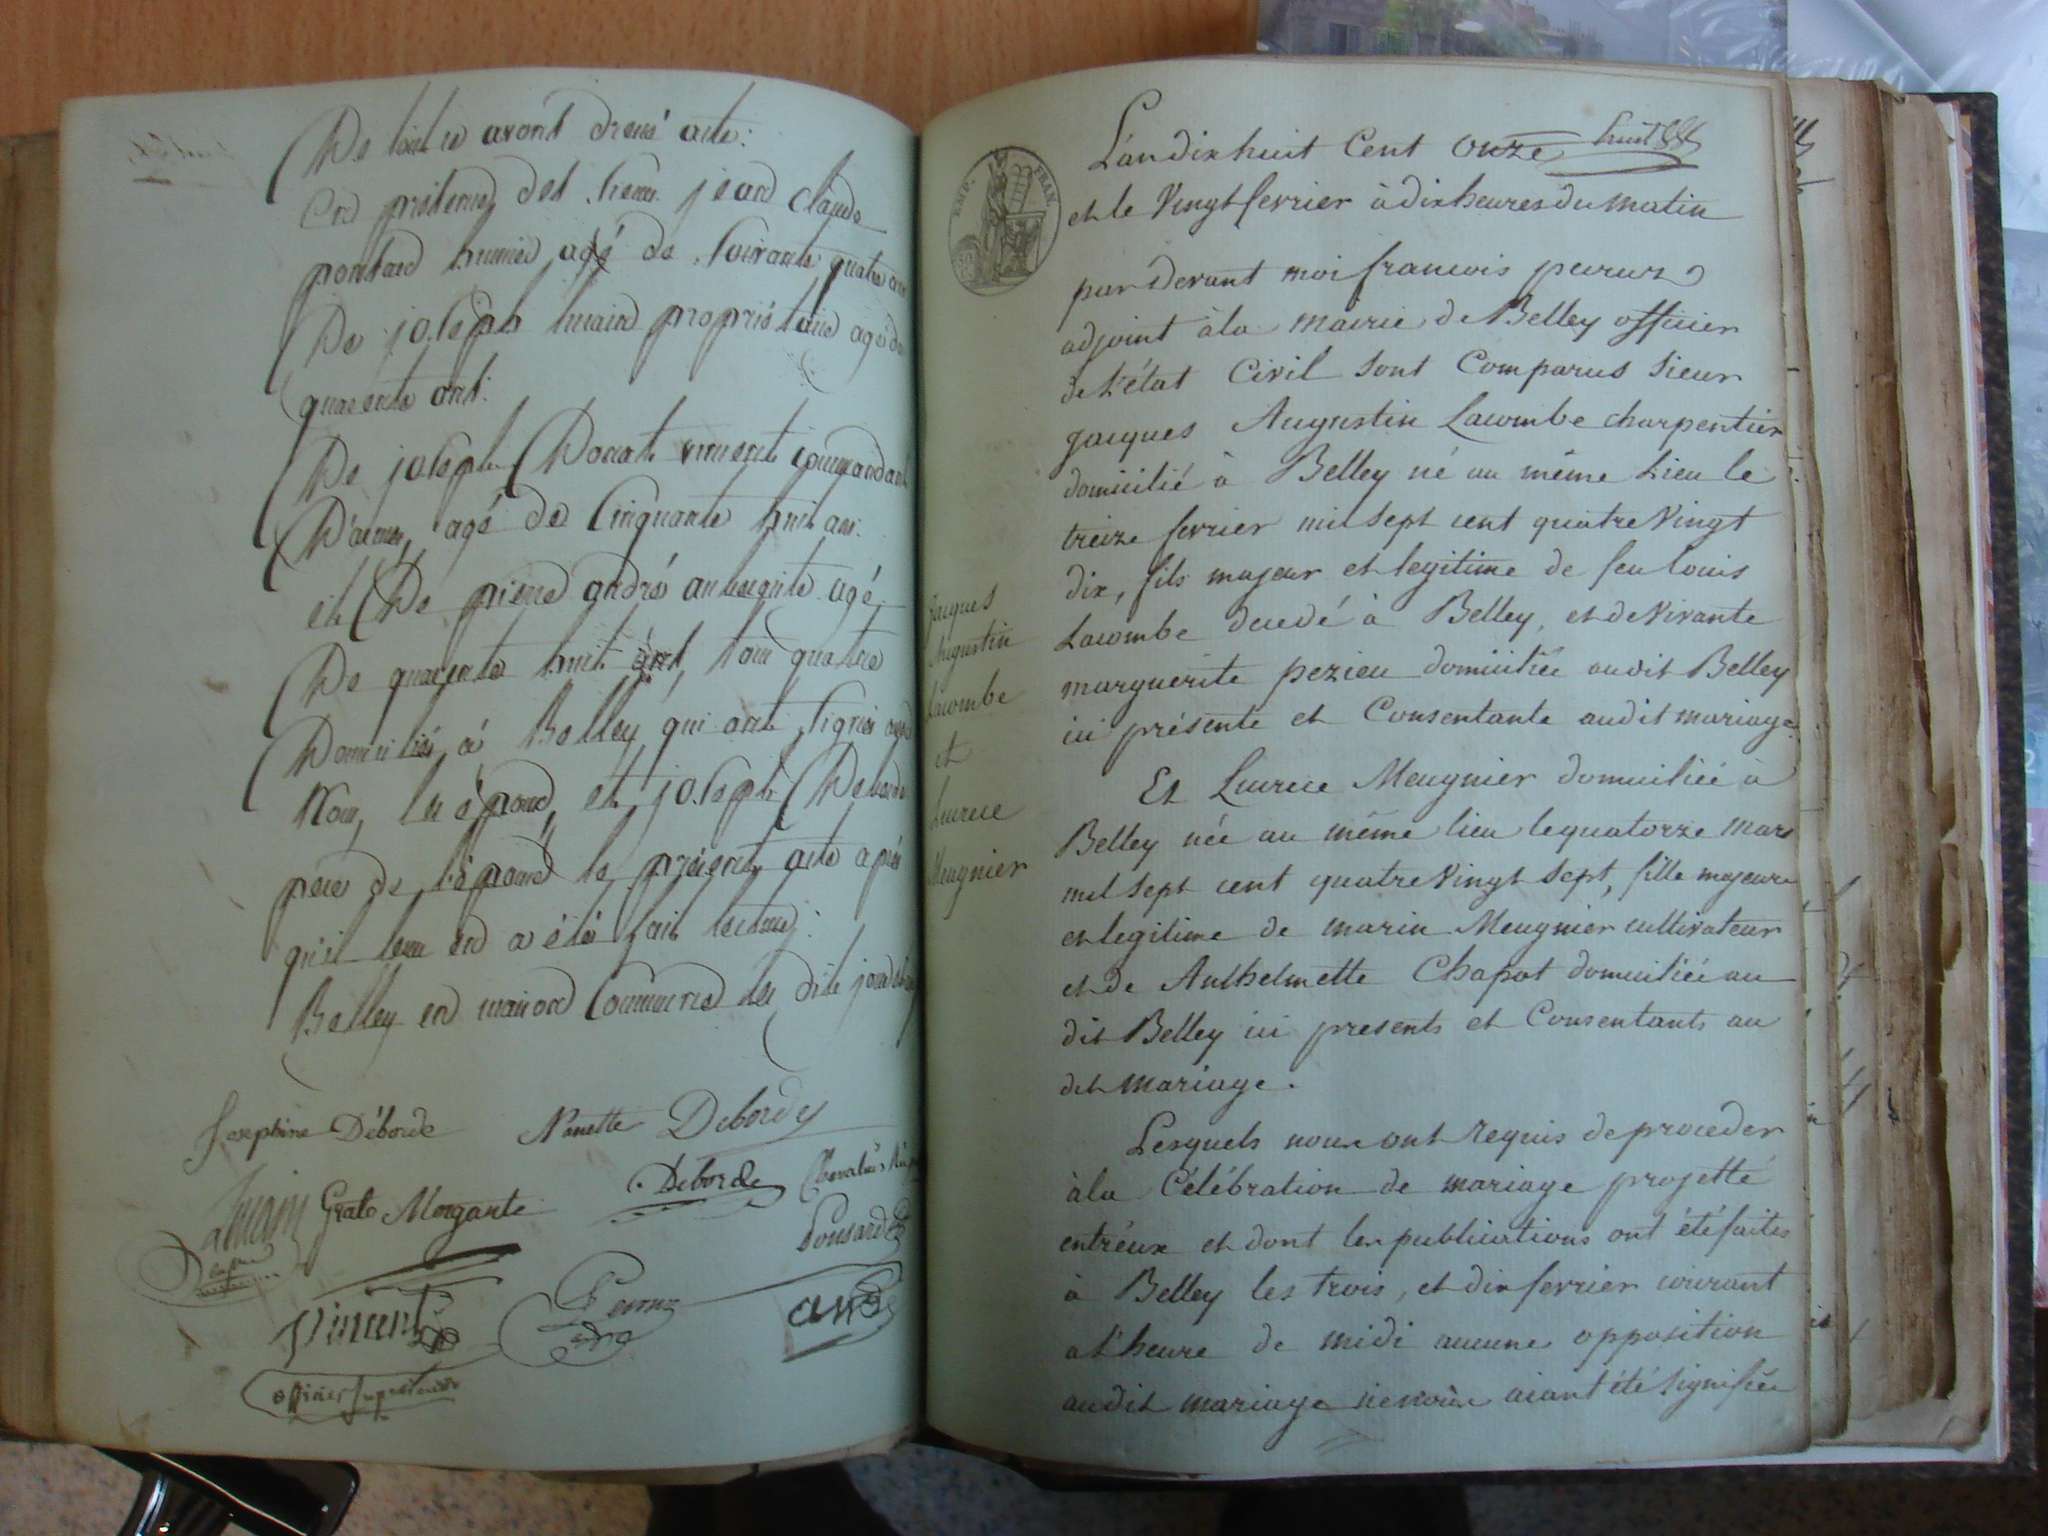 De tout ce avons dressé acte:
En présence des sieurs jean Claude
ponsard huissier agé de soixante quatre ans
De joseph humin propriétaire agé de
quarente ans.
De joseph Donat vincent commandant
D'armes, agé de Cinquante huit ans.
et De pierre andré aubergiste agé
De quarente huit ans, tous quatre
Domiciliés à Belley qui ont signés avec
Nous, les époux, et joseph Deborde
père de l'épouse le présent acte après
qu'il leur en a été fait lecture:
Belley en maison Commune les dits jour
Josephine Déborde Nanette Debordes
Grato Morgante Deborde
Ponsard
Vincent Peruuz andré
officier supérieur
huit
L'an dix huit Cent onze
EMP. FRAN.
et le Vingt fevrier à dix heures du matin
par devant moi francois peruuz
adjoint à la mairie de Belley officier
de l'état Civil sont Comparus sieur
jacques Augustin Lacombe charpentier
domicilié à Belley né au même Lieu le
treize fevrier mil sept cent quatre Vingt
dix, fils majeur et legitime de feu louis
Lacombe decedé à Belley, et de Vivante
marguerite pezieu domiciliée audit Belley
ici présente et Consentante audit mariage.
Jacques
Augustin
Lacombe
et
Lucrece
Meugnier
Et Lucrece Meugnier domiciliée à
Belley née au même lieu le quatorze mars
mil sept cent quatre Vingt sept, fille majeure
et legitime de marin Meugnier cultivateur
et de Anthelmette Chapot domiciliée au
dit Belley ici presents et Consentants au
dit mariage.
Lesquels nous ont requis de proceder
à la Célébration de mariage projetté
entr'eux et dont les publications ont été faites
à Belley les trois, et dix fevrier courant
a l'heure de midi aucune opposition
audit mariage ne nous aiant été signifiée